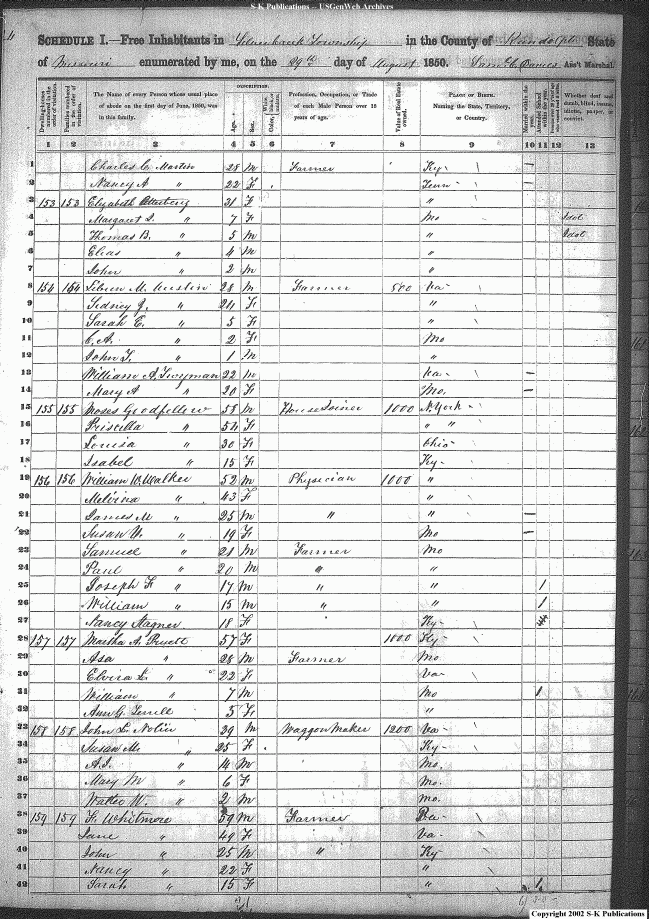 S-K Publications -- USGenWeb Archives
SCHEDULE I.—Free Inhabitants in Township in the County of Randolph State
of Missouri enumerated by me, on the 29th day of August 1850. Ass't Marshal.
Dwelling-houses numbered in the order of visitation.
Families numbered in the order of visitation.
The Name of every Person whose usual place of abode on the first day of June, 1850, was in this family.
DESCRIPTION.
Age.
Sex.
Color,
Profession, Occupation, or Trade of each Male Person over 15 years of age.
Value of Real Estate owned.
PLACE OF BIRTH. Naming the State, Territory, or Country.
Married within the year.
Attended School within the year.
Whether deaf and dumb, blind, insane, idiotic, pauper, or convict.
1 2 3 4 5 6 7 8 9 10 11 12 13
1 Charles C. Martin 28 M Farmer Ky —
2 Nancy A " 22 F Tenn —
3 153 153 Elizabeth 31 F "
4 Margaret S. " 7 F Mo Idot
5 Thomas B. " 5 M " Idot
6 Elias " 4 M "
7 John " 2 M "
8 154 154 M. Austin 28 M Farmer 500 Va
9 Sidney J. " 24 F "
10 Sarah E. " 5 F "
11 C. A. " 2 F Mo
12 John T. " 1 M "
13 William A. Twyman 22 M Va —
14 Mary A " 20 F Mo. —
15 155 155 Moses Goodfellow 58 M House Joiner 1000 N. York
16 Priscilla " 54 F " "
17 Louisa " 30 F Ohio
18 Isabel " 15 F Ky
19 156 156 William W. Walker 52 M Physician 1000 "
20 Melvina " 43 F "
21 James M " 25 M " " —
22 Susan V. " 19 F Mo —
23 Samuel " 21 M Farmer Mo
24 Paul " 20 M " "
25 Joseph F " 17 M " " 1
26 William " 15 M " " 1
27 Nancy Stagner 18 F Ky
28 157 157 Martha A. Pruett 57 F 1000 Ky
29 Asa " 28 M Farmer Mo
30 Elvira " 22 F Va
31 William " 7 M Mo 1
32 Ann G. Terrill 5 F "
33 158 158 John L. Nolin 39 M Waggon Maker 1200 Va
34 Susan M. " 25 F Ky
35 A.J. " 14 M Mo.
36 Mary M " 6 F Mo.
37 Walter W. " 2 M Mo.
38 159 159 F. Whitmore 59 M Farmer
39 Jane " 49 F Va
40 John " 25 M " Ky
41 Nancy " 22 F "
42 Sarah " 15 F " 1
Copyright 2002 S-K Publications